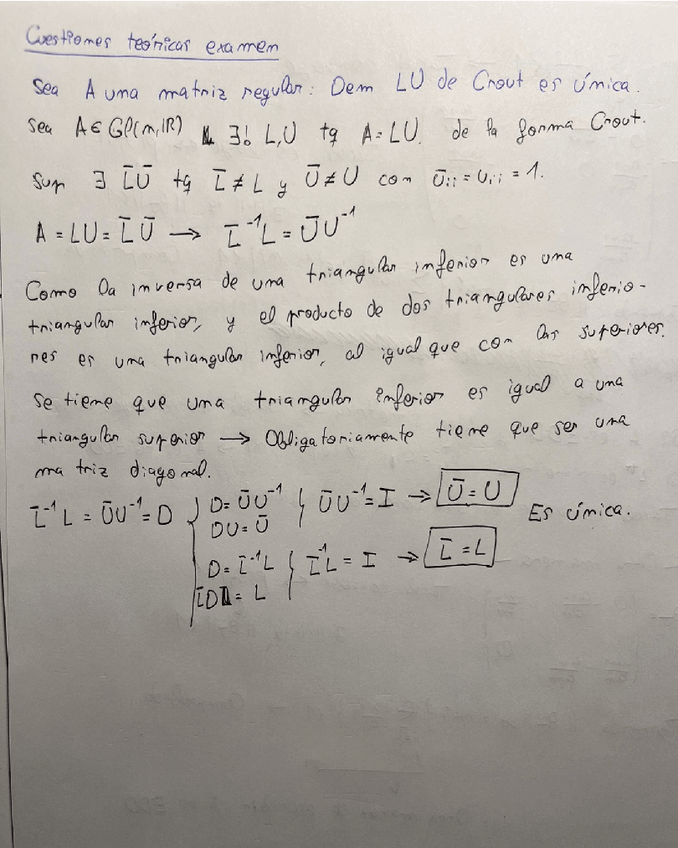 Cuestiones teóricas examen
Sea A una matriz regular: Dem LU de Crout es única.
Sea A ∈ Gl(n,ℝ) ∃! L,U tq A=LU. de la forma Crout.
Sup ∃ L̄Ū tq L̄≠L y Ū≠U con ūᵢᵢ=uᵢᵢ=1.
A = LU = L̄Ū → L̄⁻¹L = ŪU⁻¹
Como la inversa de una triangular inferior es una
triangular inferior, y el producto de dos triangulares inferio-
res es una triangular inferior, al igual que con las superiores.
Se tiene que una triangular inferior es igual a una
triangular superior → Obligatoriamente tiene que ser una
matriz diagonal.
L̄⁻¹L = ŪU⁻¹ = D { D = ŪU⁻¹ { ŪU⁻¹ = I → Ū = U Es única.
DU = Ū
D = L̄⁻¹L { L̄⁻¹L = I → L̄ = L
L̄D = L